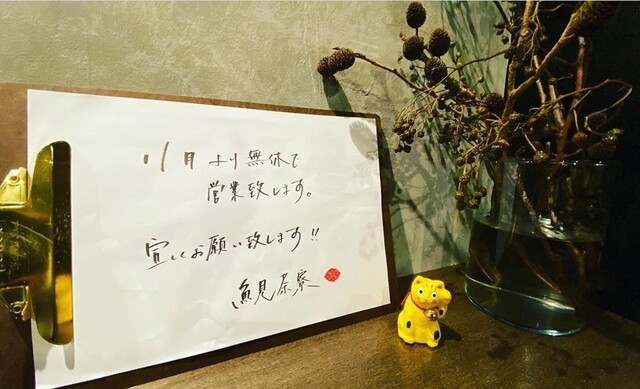 11月より無休で
営業致します。
宜しくお願い致します!!
魚見茶寮